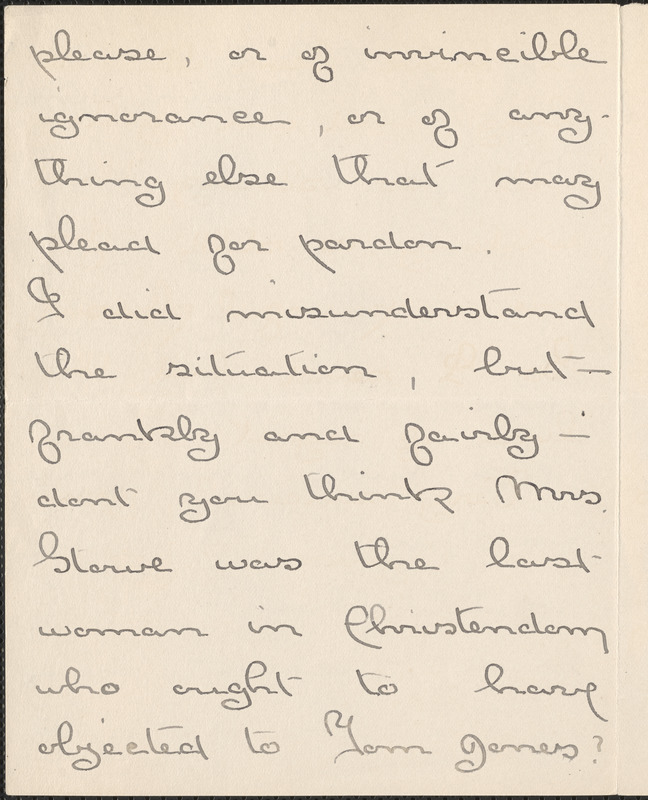 please, or of invincible
ignorance, or of any-
thing else that may
plead for pardon.
I did misunderstand
the situation, but—
frankly and fairly—
dont you think Mrs.
Stowe was the last
woman in Christendom
who ought to have
objected to Tom Jones?